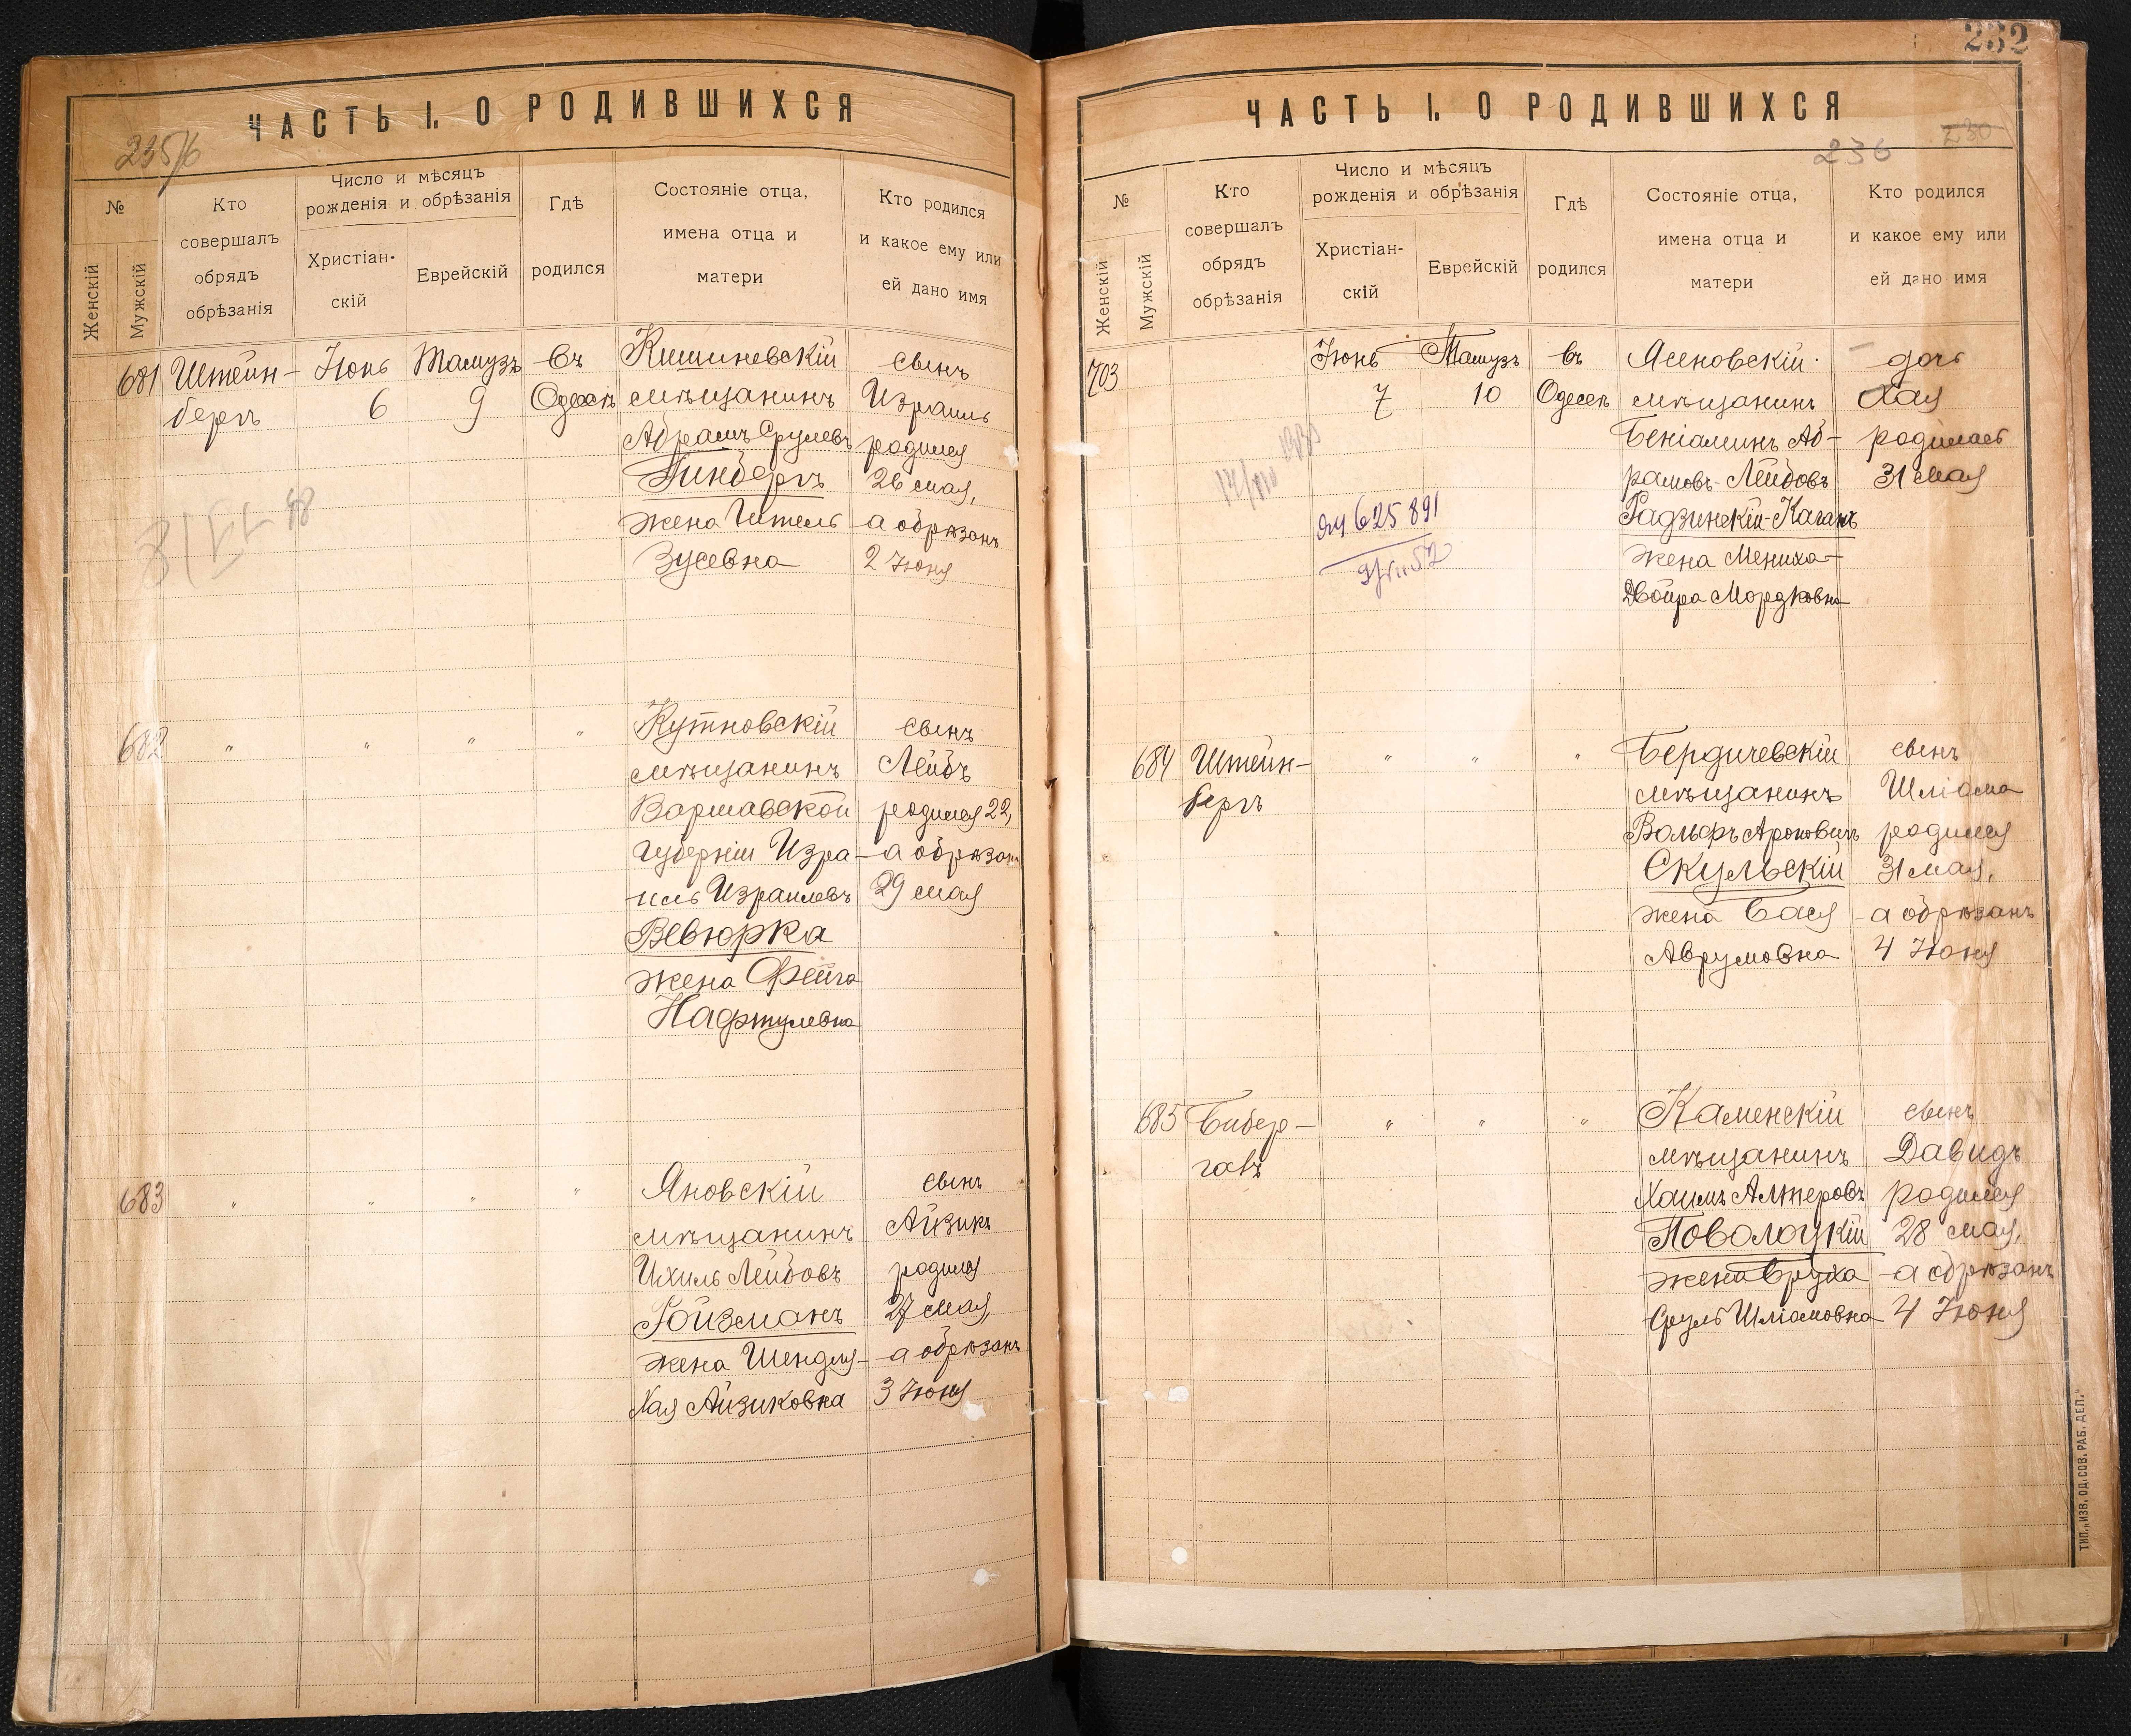 ЧАСТЬ I. О РОДИВШИХСЯ
235/6
№
Женскій
Мужскій
Кто
совершалъ
обрядъ
обрѣзанія
Число и мѣсяцъ
рожденія и обрѣзанія
Христіан-
скій
Еврейскій
Гдѣ
родился
Состояніе отца,
имена отца и
матери
Кто родился
и какое ему или
ей дано имя
681
Штейн-
бергъ
Іюнь
6
Тамузъ
9
въ
Одессѣ
Кишиневскій
мѣщанинъ
Абрамъ Срулевъ
Гинбергъ
жена Итель
Зусевна
сынъ
Израиль
родился
26 мая,
а обрѣзанъ
2 Іюня
682
" " " "
Кутновскій
мѣщанинъ
Варшавской
губерніи Изра-
иль Израилевъ
Вевюрка
жена Фейга
Нафтулевна
сынъ
Лейбъ
родился 22,
а обрѣзанъ
29 мая
683
" " " "
Яновскій
мѣщанинъ
Ихиль Лейбовъ
Ройзманъ
жена Шендля-
Хая Айзиковна
сынъ
Айзикъ
родился
27 мая,
а обрѣзанъ
3 Іюня
232
ЧАСТЬ I. О РОДИВШИХСЯ
236
230
№
Женскій
Мужскій
Кто
совершалъ
обрядъ
обрѣзанія
Число и мѣсяцъ
рожденія и обрѣзанія
Христіан-
скій
Еврейскій
Гдѣ
родился
Состояніе отца,
имена отца и
матери
Кто родился
и какое ему или
ей дано имя
703
Іюнь
7
Тамузъ
10
въ
Одессѣ
625891
Ясеновскій
мѣщанинъ
Беніаминъ Аб-
рамовъ-Лейбовъ
Радзинскій-Каганъ
жена Мениха-
Двойра Мордковна
дочь
Хая
родилась
31 мая
684
Штейн-
бергъ
" " "
Бердичевскій
мѣщанинъ
Вольфъ Ароновичъ
Скульскій
жена Бася
Аврумовна
сынъ
Шліома
родился
31 мая,
а обрѣзанъ
4 Іюня
685
Бибер-
галъ
" " "
Каменскій
мѣщанинъ
Хаимъ Алтеровъ
Поволоцкій
жена Бруха
Сруль Шліомовна
сынъ
Давидъ
родился
28 мая,
а обрѣзанъ
4 Іюня
ТИП. „ИЗВ. ОД. СОВ. РАБ. ДЕП.“